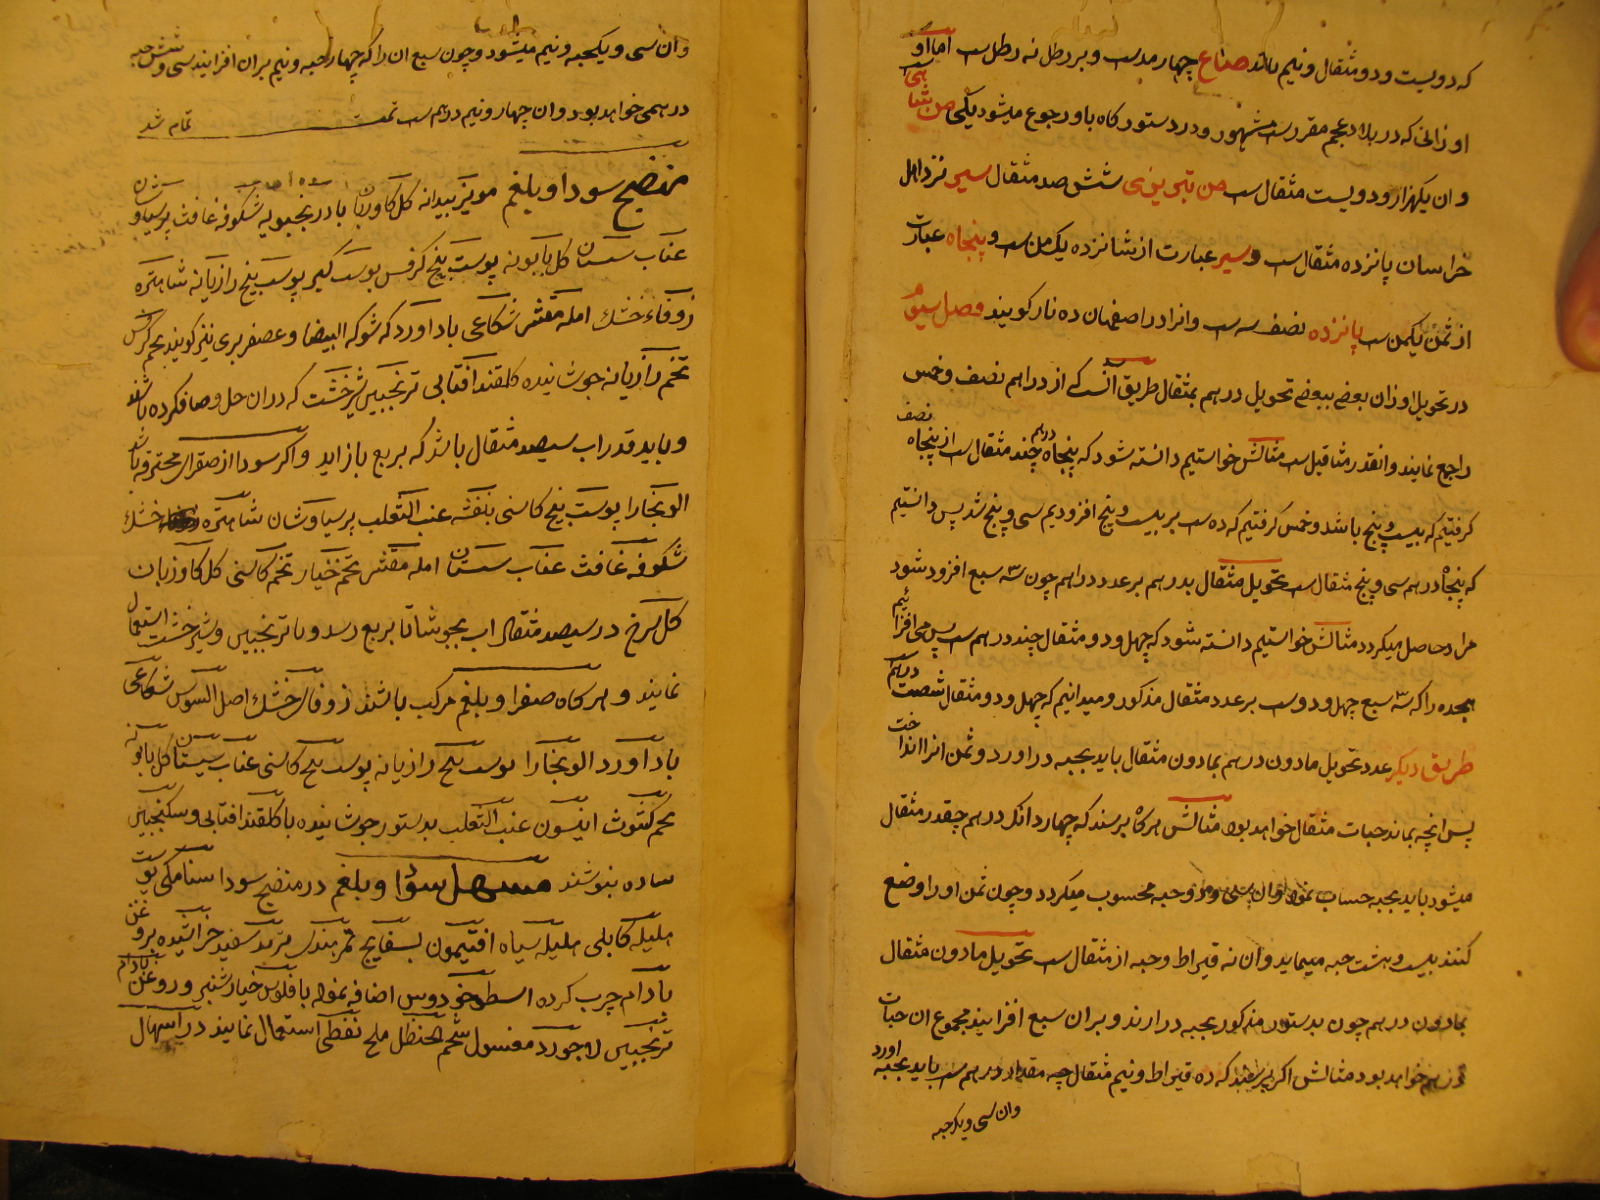 که دویست و دو مثقال و نیم باشد صاع چهار مدست و بر رطل نه رطل ست اما او
اوزانی که در بلاد عجم مقررست مشهور و در دستور کاه باو رجوع میشود یکی من شاهی ست
و ان یکهزار و دویست مثقال ست من تبریزی شش صد مثقال سیر نزد اهل
خراسان پانزده مثقال ست و سیر عبارت از شانزده یک من ست و پنجاه عبارت
از ثمن یکمن ست پانزده نصف سه ست و انرا در اصفهان ده نار کویند فصل سیوم
در تحویل اوزان بعضی ببعضی تحویل درهم بمثقال طریق انست که از دراهم نصف و خمس
راجع نمایند و انقدر مثاقیل ست مثالش خواستیم دانسته شود که پنجاه درهم چند مثقال ست از پنجاه نصف
کرفتیم که بیست و پنج باشد و خمس کرفتیم که ده ست بر بیست و پنج افزودیم سی و پنج شد پس دانستیم
که پنجاه درهم سی و پنج مثقال ست تحویل مثقال بدرهم بر عدد دراهم چون سه سبع افزود شود
مراد حاصل میکردد مثالش خواستیم دانسته شود که چهل و دو مثقال چند درهم ست پس می افزائیم
هجده را که سه سبع چهل و دو ست بر عدد مثقال مذکور و میدانیم که چهل و دو مثقال شصت درهم ست
طریق دیکر عدد تحویل مادون درهم بمادون مثقال باید بحبه دراورد و ثمن انرا انداخت
پس انچه بماند حبات مثقال خواهد بود مثالش هرکاه پرسند که چهار دانک درهم چقدر مثقال
میشود باید بحبه حساب نمود و ان سی و دو حبه محسوب میکردد و چون ثمن او را وضع
کنند بیست و هشت حبه میماید و ان نه قیراط و حبه از مثقال ست تحویل مادون مثقال
بمادون درهم چون بدستور مذکور بحبه درارند و بران سبع افزایند مجموع ان حبات
درهم خواهد بود مثالش اکر پرسند که ده قیراط و نیم مثقال چه مقدار درهم ست باید بحبه اورد
و ان سی و یکحبه
و ان سی و یکحبه و نیم میشود و چون سبع ان را که چهار حبه و نیم بران افزایند سی و شش حبه
درهمی خواهد بود و ان چهار و نیم درهم ست تمت تمام شد
منضج سودا و بلغم مویز بیدانه کل کاوزبان بادرنجبویه شکوفه غافث پرسیاوشان
عناب سپستان کل بابونه پوست بیخ کرفس پوست کبر پوست بیخ رازیانه شاهتره
زوفاء خشک امله مقشر شکاعی باد اورد که شوکه البیضا و عصفر بری نیز کویند تخم کرفس
تخم رازیانه جوشانیده کلقند افتابی ترنجبین شیرخشت که دران حل و صاف کرده باشند
و باید قدر اب سیصد مثقال باشد که بربع باز اید و اکر سودا از صفرای محترقه باشد
الوبخارا پوست بیخ کاسنی بنفشه عنب الثعلب پرسیاوشان شاهتره خشک
شکوفه غافث عناب سپستان امله مقشر تخم خیار تخم کاسنی کل کاوزبان
کل سرخ در سیصد مثقال اب بجوشاند تا بربع رسد و با ترنجبین و شیرخشت استعمال
نمایند و هرکاه صفرا و بلغم مرکب باشند زوفای خشک اصل السوس شکاعی
باد اورد الوبخارا پوست بیخ رازیانه پوست بیخ کاسنی عناب سپستان کل بابونه
تخم کثوث انیسون عنب الثعلب بدستور جوشانیده با کلقند افتابی و سکنجبین
ساده بنوشند مسهل سودا و بلغم در منضج سودا سنامکی پوست
هلیله کابلی هلیله سیاه افتیمون بسفایج تمر هندی تربد سفید خراشیده بروغن
بادام چرب کرده اسطوخودوس اضافه نموده با فلوس خیارشنبر و روغن بادام
ترنجبین لاجورد مغسول شحم حنظل ملح نفطی استعمال نمایند در اسهال